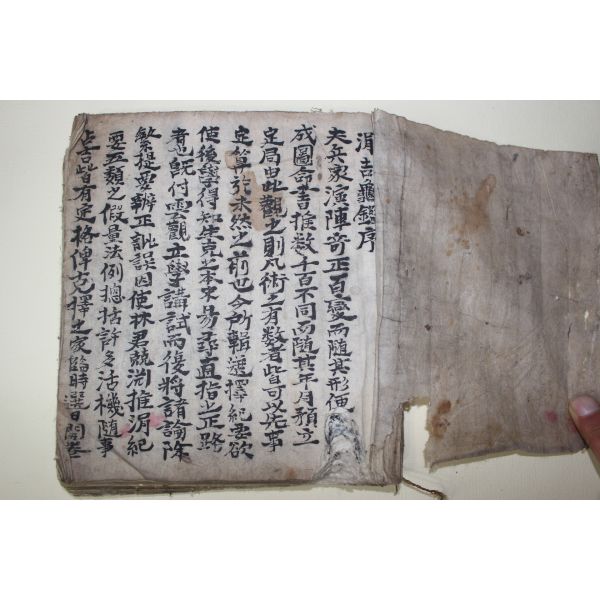 涓吉龜鑑序
夫兵家演陣奇正百變而隨其形便
成圖命書推数千百不同而隨其年月預立
定局由此觀之則凡術之有数者皆可以先事
定算於未然之前也今所輯選擇紀要欲
使後學得知生克之本末易尋直指之正路
者既付雲觀立學講試而復將諸論除
繁提要辨正訛誤因使林君競渕推涓紀
要五類之假量法例揔括許多活機隨事
占吉皆有定格俾克擇之家臨時選日開卷